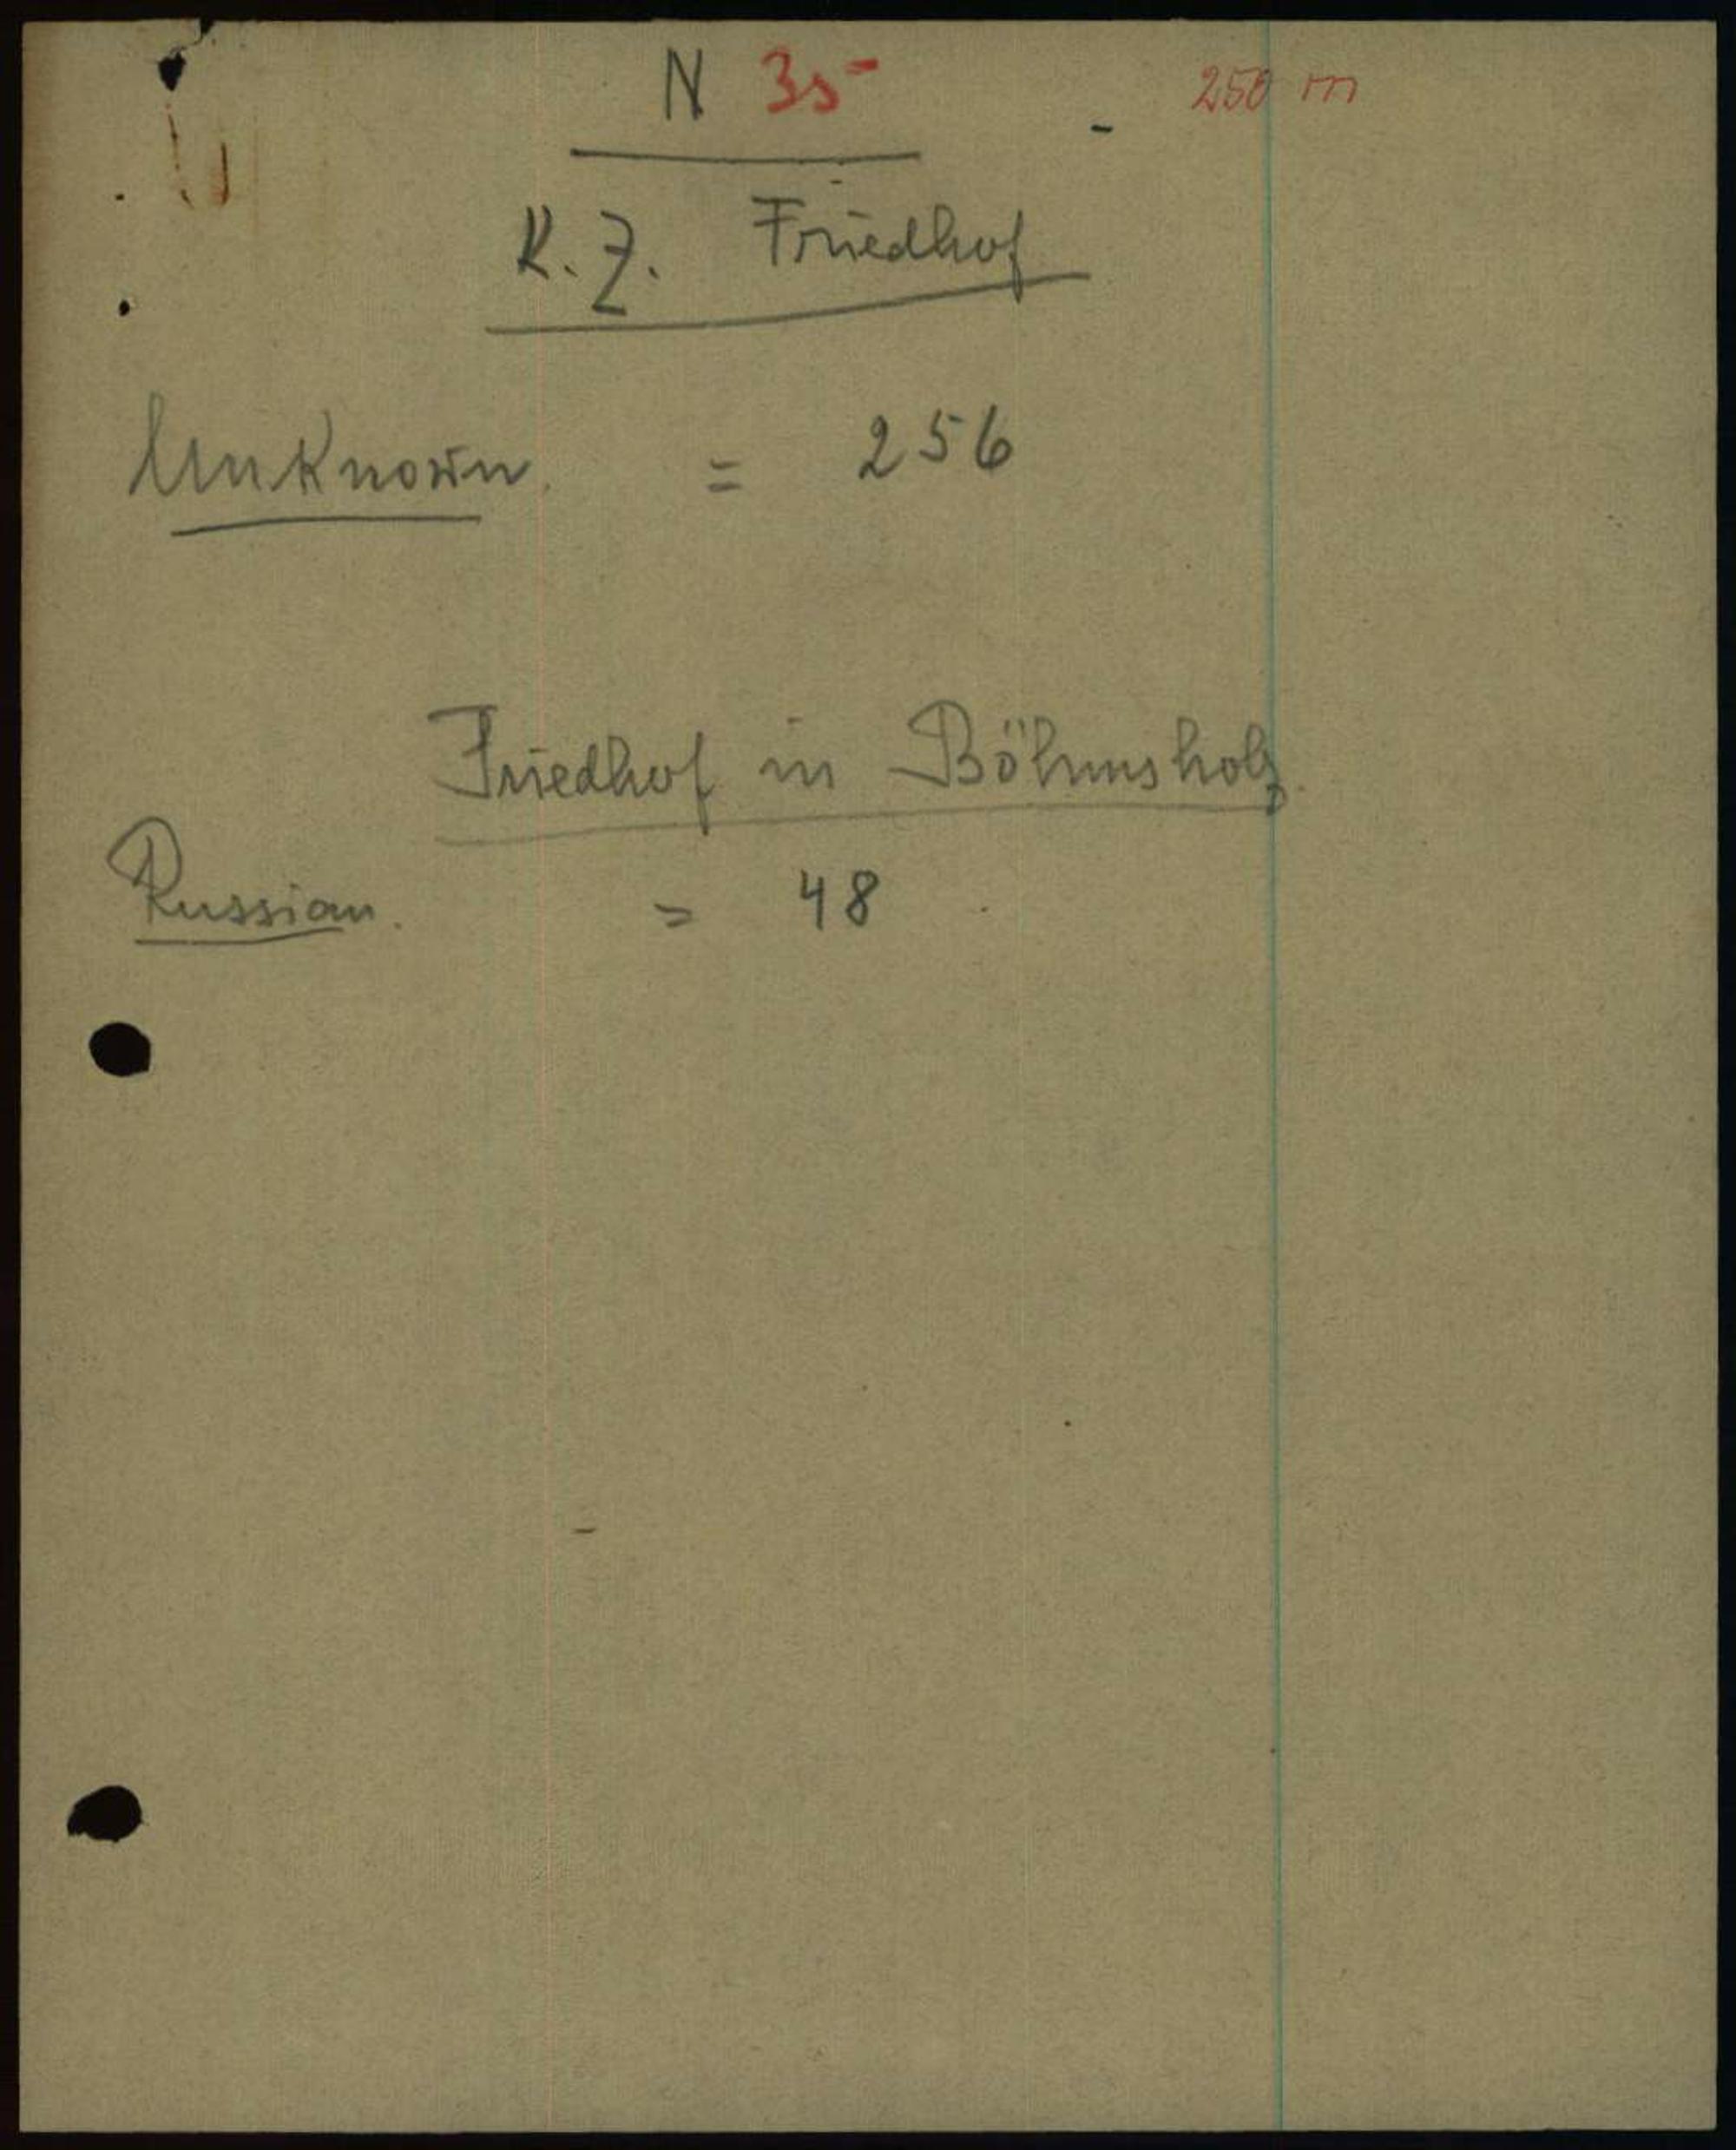 N 35 250 m
K. Z. Friedhof
Unknown. = 256
Friedhof in Böhmsholz.
Russian. = 48